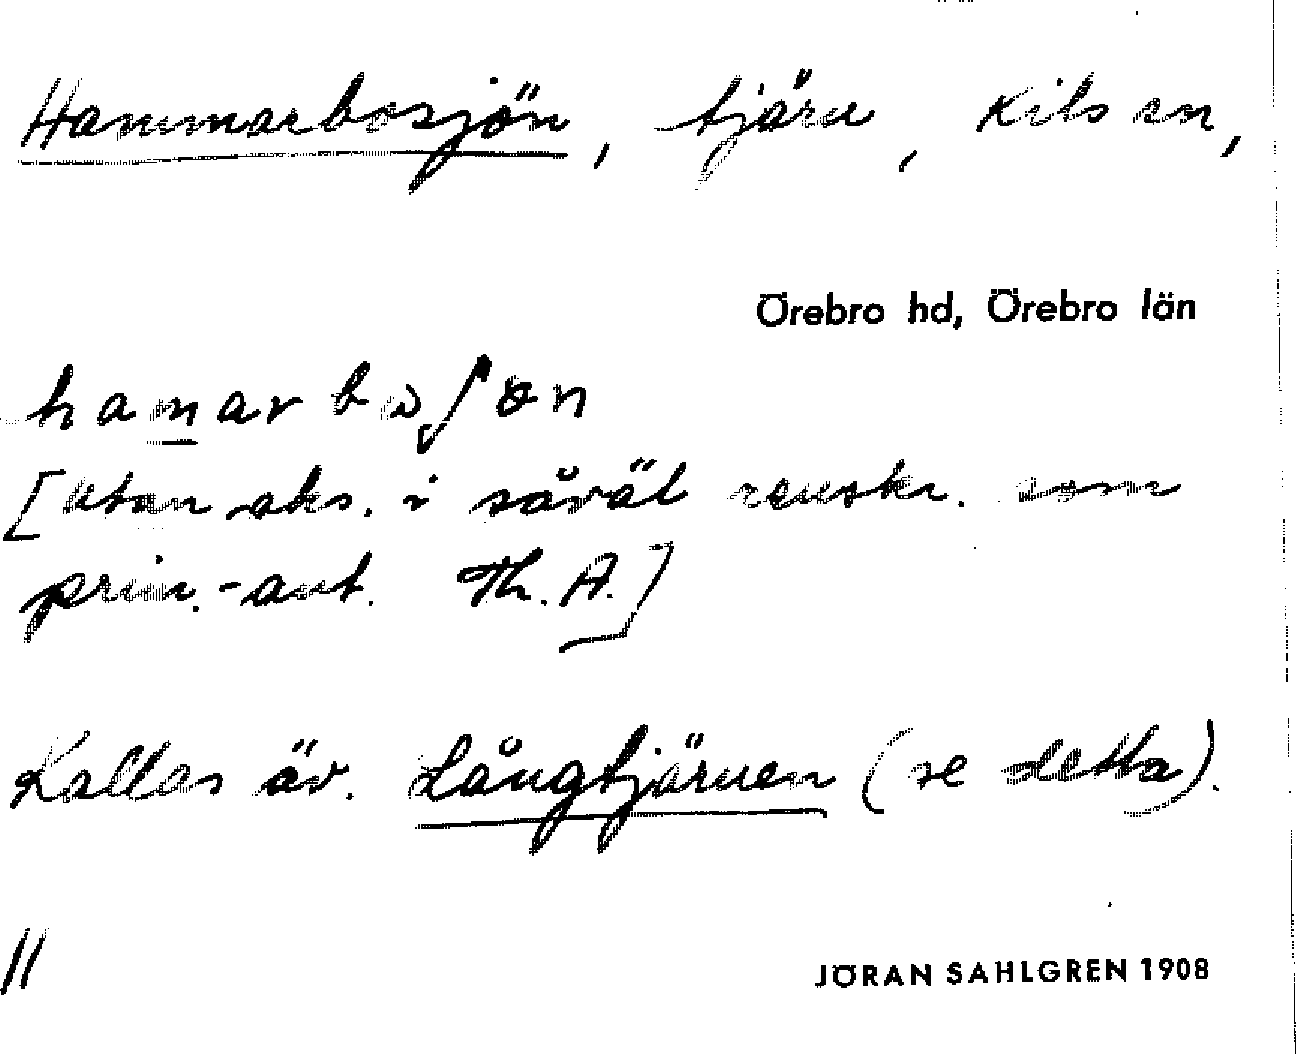 Hammarbosjön, tjärn, Kils sn,
Örebro hd, Örebro län
hamarbωʃөn
[utan aks. i såväl renskr. som
prim.-ant. Th. A.]
Kallas äv. Långtjärnen (se detta).
JÖRAN SAHLGREN 1908